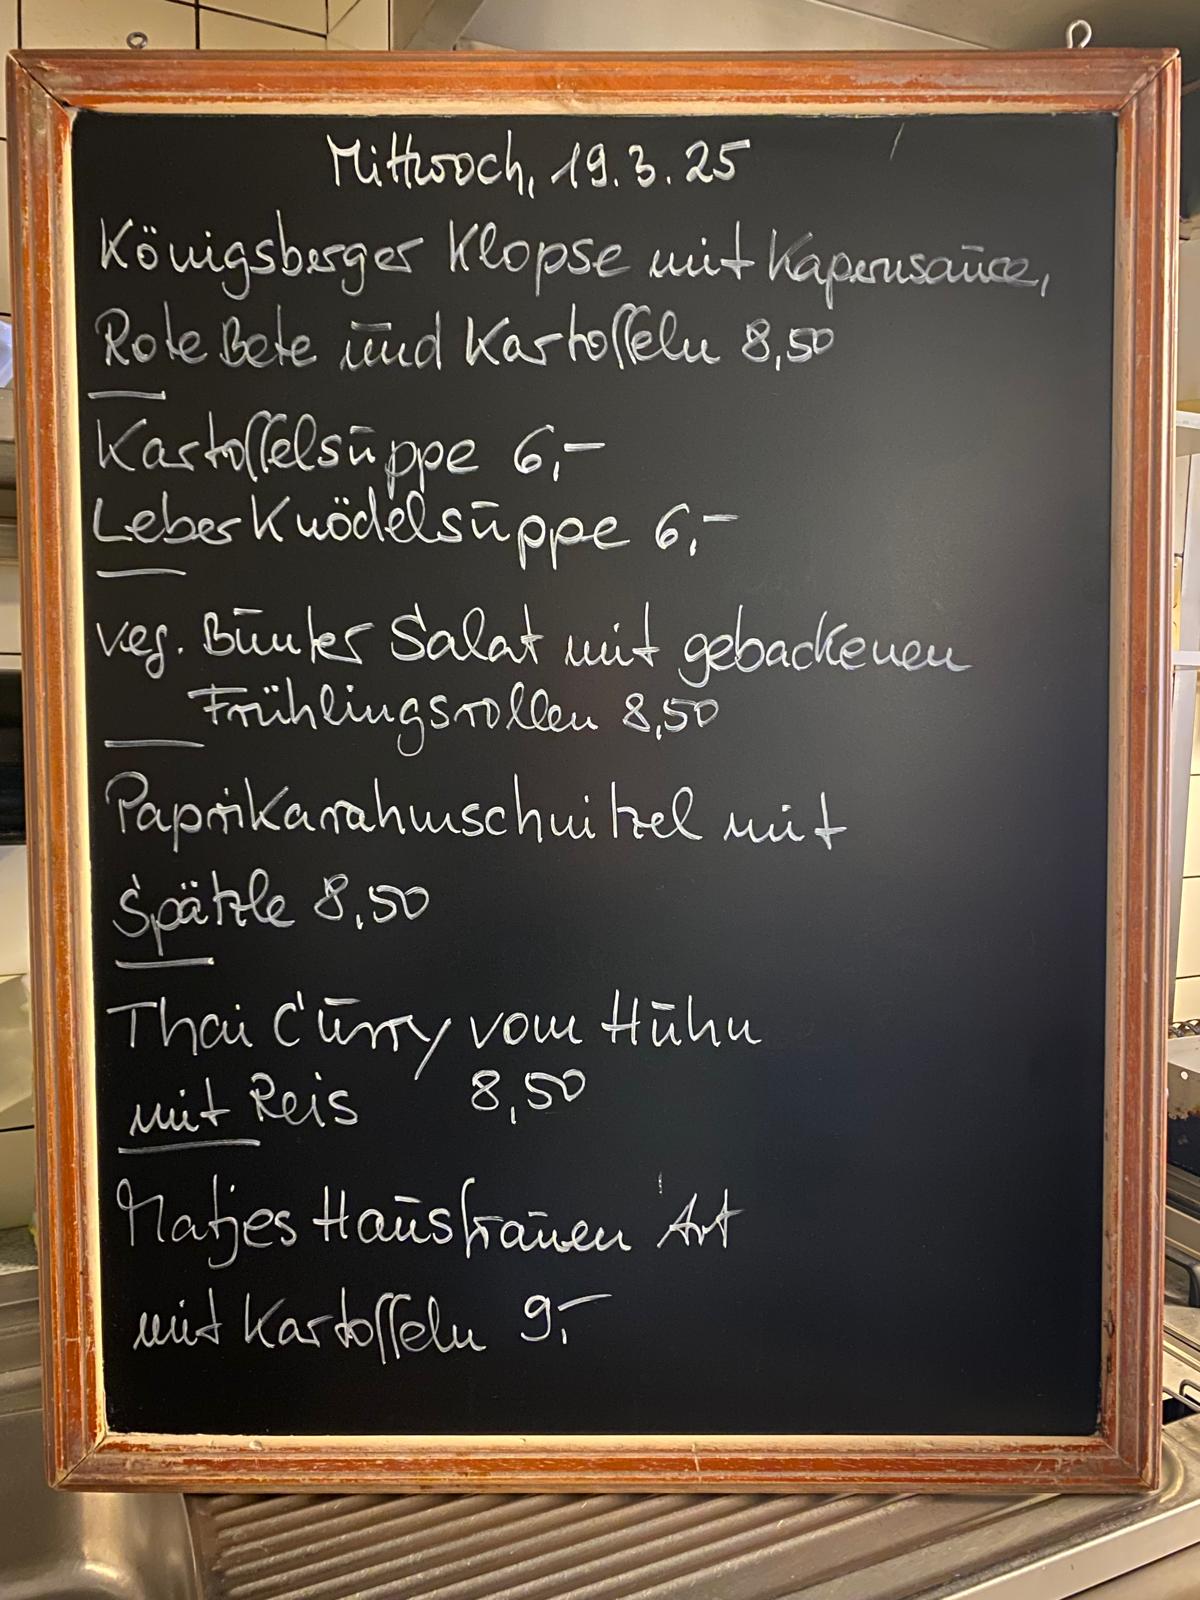 Mittwoch, 19.3.25
Königsberger Klopse mit Kapernsauce,
Rote Bete und Kartoffeln 8,50
Kartoffelsuppe 6,-
Leberknödelsuppe 6,-
veg. Bunter Salat mit gebackenen
Frühlingsrollen 8,50
Paprikarahmschnitzel mit
Spätzle 8,50
Thai Curry vom Huhn
mit Reis 8,50
Matjes Hausfrauen Art
mit Kartoffeln 9,-